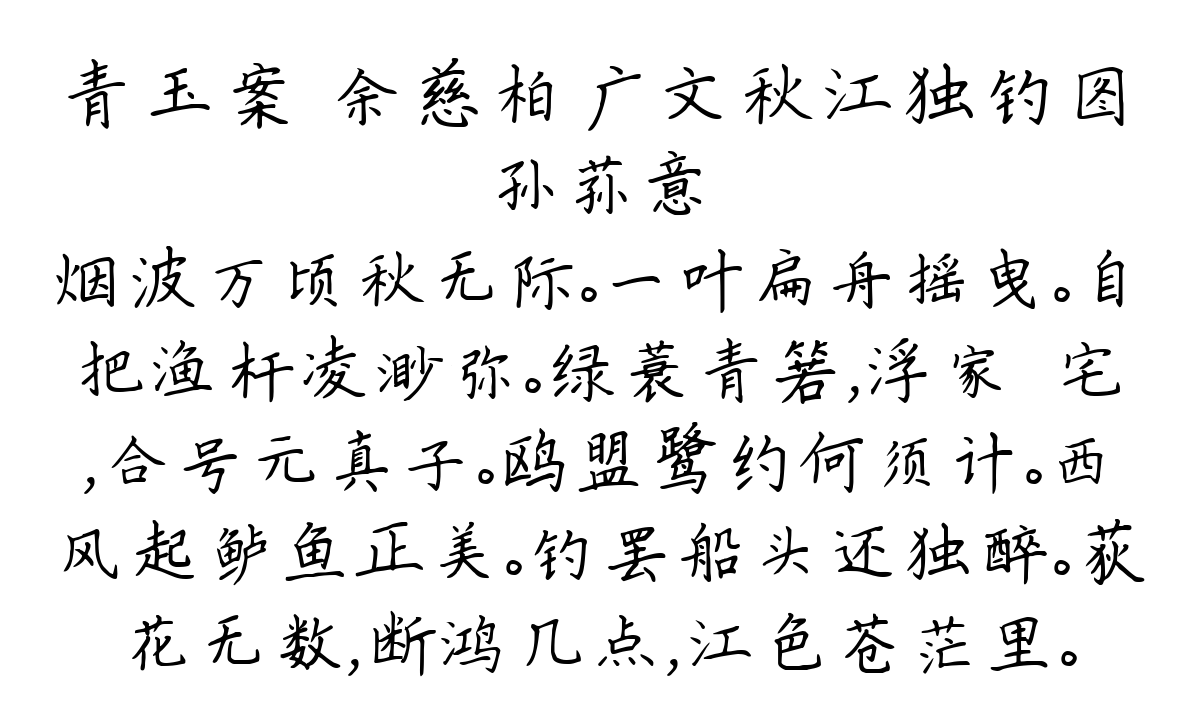 青玉案 余慈柏广文秋江独钓图
孙荪意
烟波万顷秋无际。一叶扁舟摇曳。自
把渔杆凌渺弥。绿蓑青箬,浮家 宅
,合号元真子。鸥盟鹭约何须计。西
风起鲈鱼正美。钓罢船头还独醉。荻
花无数,断鸿几点,江色苍茫里。